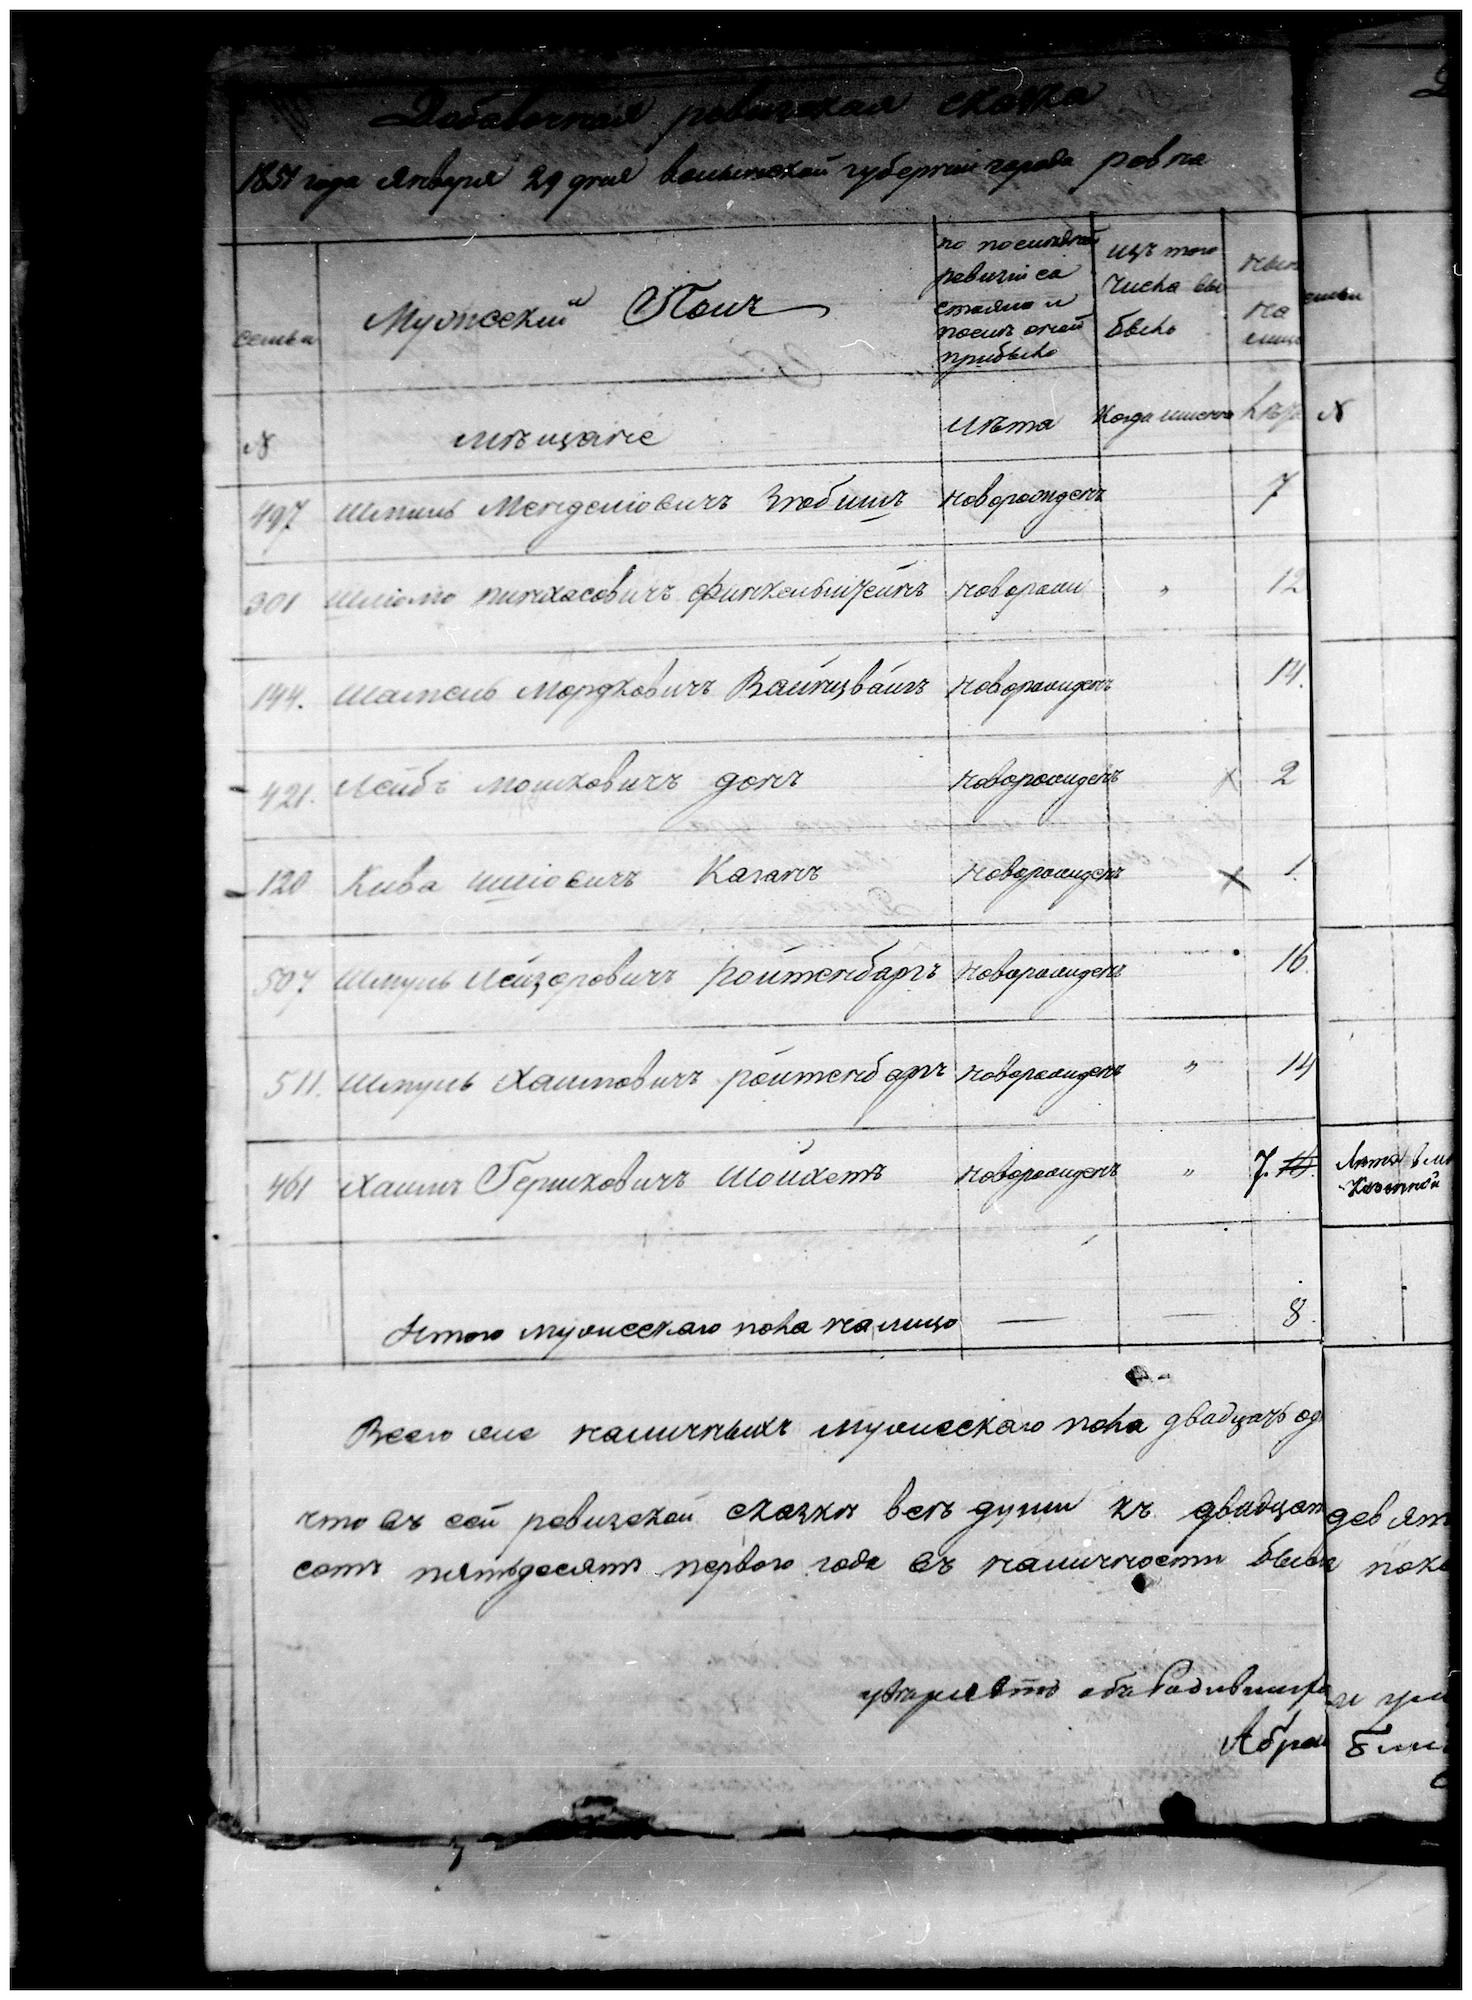 Добавочная ревизская сказка
1851 года Января 29 дня волынской губернии города ровна
семьи
Мужеский Полъ
по последней ревизии состояло и после оной прибыло
изъ того числа выбыло
ныне на лицо
семьи
N
мѣщане
лѣта
Когда именно
лѣта
N
497 Шмиль Менделiовичъ Зюбишъ новорожденъ 7
301 Шлiомо пинхасовичъ финкельштейнъ новорож " 12
144. Шамель Мордковичъ Вайнцвайгъ новорожденъ 14.
421. Лейбъ мошковичъ донъ новорожденъ x 2
120 Кива шлiовичъ Каганъ новорожденъ x 1.
507. Шмуль Лейзоровичъ ройтенбаргъ новорожденъ 16.
511. Шмуль Хаимовичъ ройтенбаргъ новорожденъ " 14
461 Хаимъ Гершковичъ Шойхетъ новорожденъ " 7.
Итого мужескаго пола налицо — — 8.
Всего же наличныхъ мужескаго пола двадцать од
что въ сей ревизской сказке всѣ души къ двадцат девят
сотъ пятьдесятъ первого года въ наличности были пока
Абрам